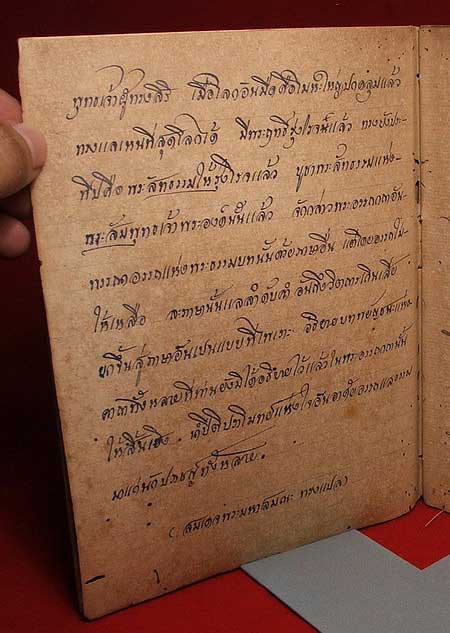 พุทธเจ้าผู้ทรงสิริ เมื่อโลกอันมืดคือโมหะใหญ่ปกคลุมแล้ว
ทรงแลเห็นที่สุดโลกได้ มีพระฤทธิ์รุ่งโรจน์แล้ว ทรงยังประ-
ทีปคือพระสัทธรรมให้รุ่งโรจแล้ว บูชาพระสัทธรรมแห่ง-
พระสัมพุทธเจ้าพระองค์นั้นแล้ว จักกล่าวพระอรรถกถาอัน-
พรรณาอรรถแห่งพระธรรมบทนั้นด้วยภาษาอื่น แต่โดยอรรถไม่-
ให้เหลือ ละภาษานั้นแลลำดับคำ อันถึงวิตถารเกินเสีย
ยกขึ้นสู่ภาษาอันเปนแบบที่ไพเราะ อธิบายบททพยัญชนะแห่ง-
คาถาทั้งหลายที่ท่านยังมิได้อธิบายไว้แล้วในพระอรรถกถานั้น
ให้สิ้นเชิง นำปีติปราโมทย์แห่งใจอันอาศัยอรรถแลธรรม
มาแก่นักปราชญ์ทั้งหลาย
(สมเดจพระมหาสมณะ ทรงแปล)